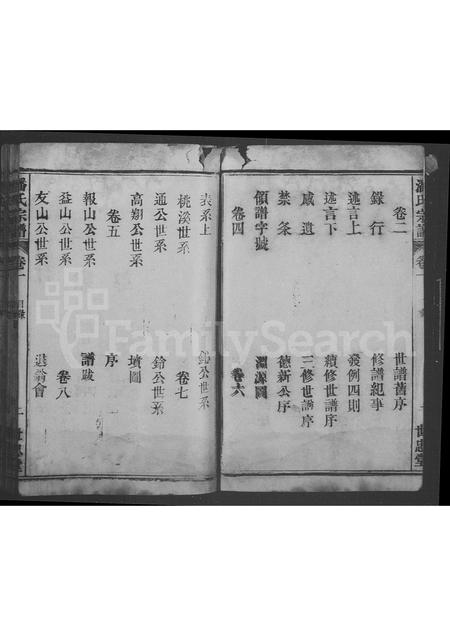 潘氏宗譜
卷一
世忠堂
卷二
世譜舊序
錄行
修譜紀事
述言上
發例四則
述言下
續修世譜序
咸遺
三修世譜序
禁条
德新公序
領譜字號
淵源圖
卷四
卷六
表系上
鉛公世系
桃溪世系
卷七
通公世系
鈴公世系
高翔公世系
墳圖
卷五
序
報山公世系
譜跋
益山公世系
卷八
友山公世系
潘氏宗譜
卷一
目錄
一
世忠堂
FamilySearch